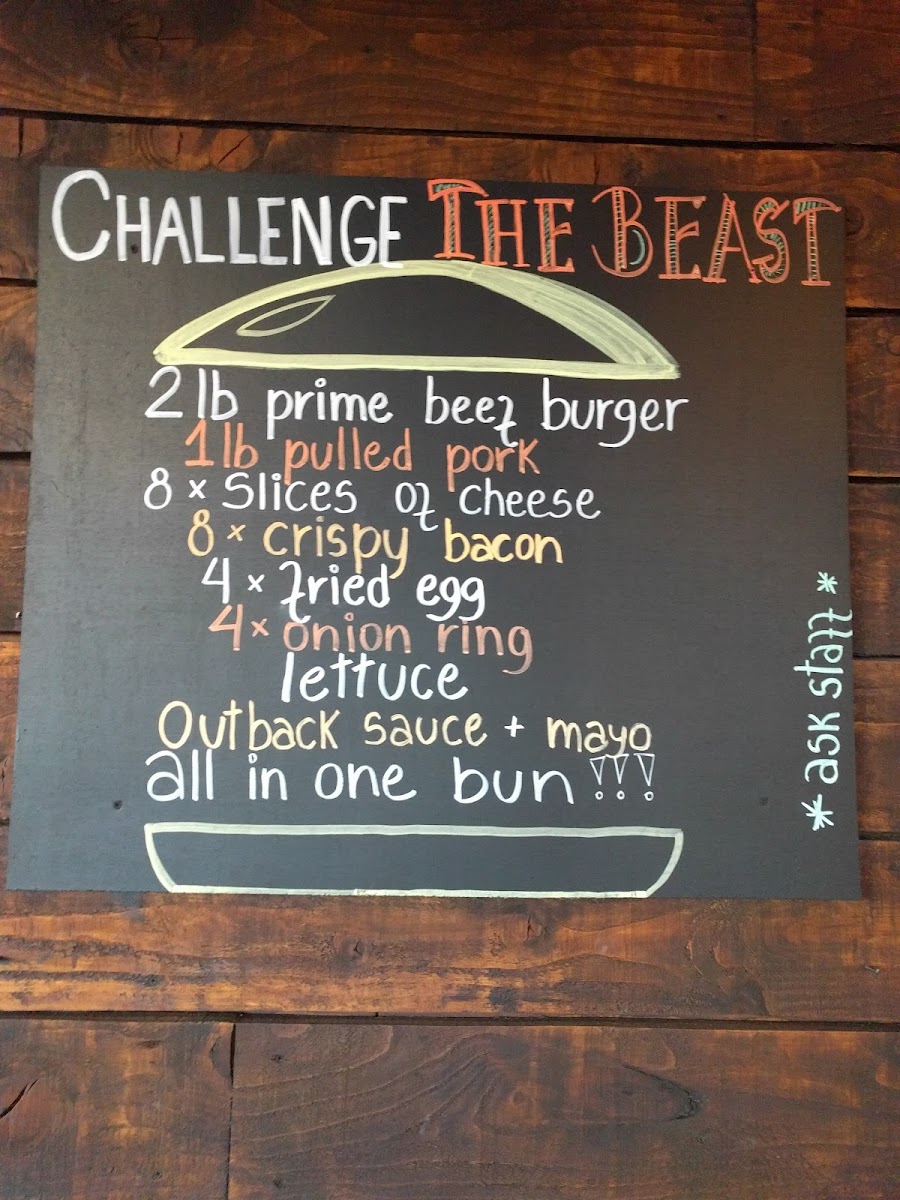 CHALLENGE THE BEAST
2lb prime beef burger
1lb pulled pork
8 x Slices of cheese
8 x crispy bacon
4 x fried egg
4 x onion ring
lettuce
Outback sauce + mayo
all in one bun !!!
* ask staff *